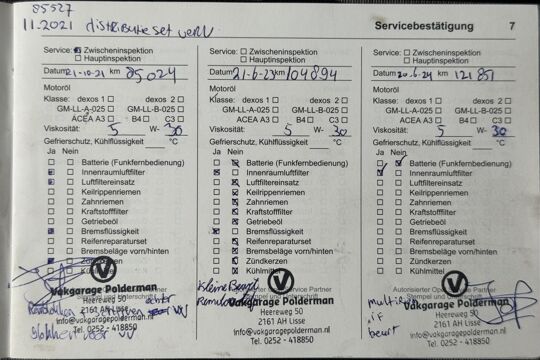 85527
11.2021 distributie set verv
Servicebestätigung 7
Service: Zwischeninspektion
Hauptinspektion
Datum 21-10-21 km 85024
Motoröl
Klasse: dexos 1 dexos 2
GM-LL-A-025 GM-LL-B-025
ACEA A3 B4 C3
Viskosität: 5 W- 30
Gefrierschutz, Kühlflüssigkeit °C
Ja Nein
Batterie (Funkfernbedienung)
Innenraumluftfilter
Luftfiltereinsatz
Keilrippenriemen
Zahnriemen
Kraftstofffilter
Getriebeöl
Bremsflüssigkeit
Reifenreparaturset
Bremsbeläge vorn/hinten
Zündkerzen
Vakgarage Polderman
Heereweg 50
2161 AH
info@vakgaragepolderman.nl
Tel. 0252 - 418850
Service: Zwischeninspektion
Hauptinspektion
Datum 21-6-23 km 104894
Motoröl
Klasse: dexos 1 dexos 2
GM-LL-A-025 GM-LL-B-025
ACEA A3 B4 C3
Viskosität: 5 W- 30
Gefrierschutz, Kühlflüssigkeit °C
Ja Nein
Batterie (Funkfernbedienung)
Innenraumluftfilter
Luftfiltereinsatz
Keilrippenriemen
Zahnriemen
Kraftstofffilter
Getriebeöl
Bremsflüssigkeit
Reifenreparaturset
Bremsbeläge vorn/hinten
Zündkerzen
Kühlmittel
Kleine Beurt
Vakgarage Polderman
Heereweg 50
2161 AH Lisse
info@vakgaragepolderman.nl
Tel. 0252 - 418850
Service: Zwischeninspektion
Hauptinspektion
Datum 20-6-24 km 121 851
Motoröl
Klasse: dexos 1 dexos 2
GM-LL-A-025 GM-LL-B-025
ACEA A3 B4 C3
Viskosität: 5 W- 30
Gefrierschutz, Kühlflüssigkeit °C
Ja Nein
Batterie (Funkfernbedienung)
Innenraumluftfilter
Luftfiltereinsatz
Keilrippenriemen
Zahnriemen
Kraftstofffilter
Getriebeöl
Bremsflüssigkeit
Reifenreparaturset
Bremsbeläge vorn/hinten
Zündkerzen
Kühlmittel
Autorisierter Opel Service Partner
Stempel und Unterschrift
Vakgarage Polderman
Heereweg 50
2161 AH Lisse
beurt
info@vakgaragepolderman.nl
Tel. 0252 - 418850